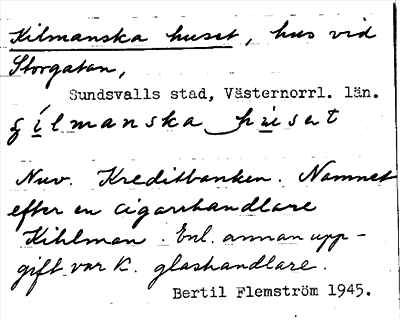 Kilmanska huset, hus vid
Storgatan,
Sundsvalls stad, Västernorrl. län.
Nuv. Kreditbanken. Namnet
efter en cigarrhandlare
Kihlman. Enl. annan upp-
gift var K. glashandlare.
Bertil Flemström 1945.